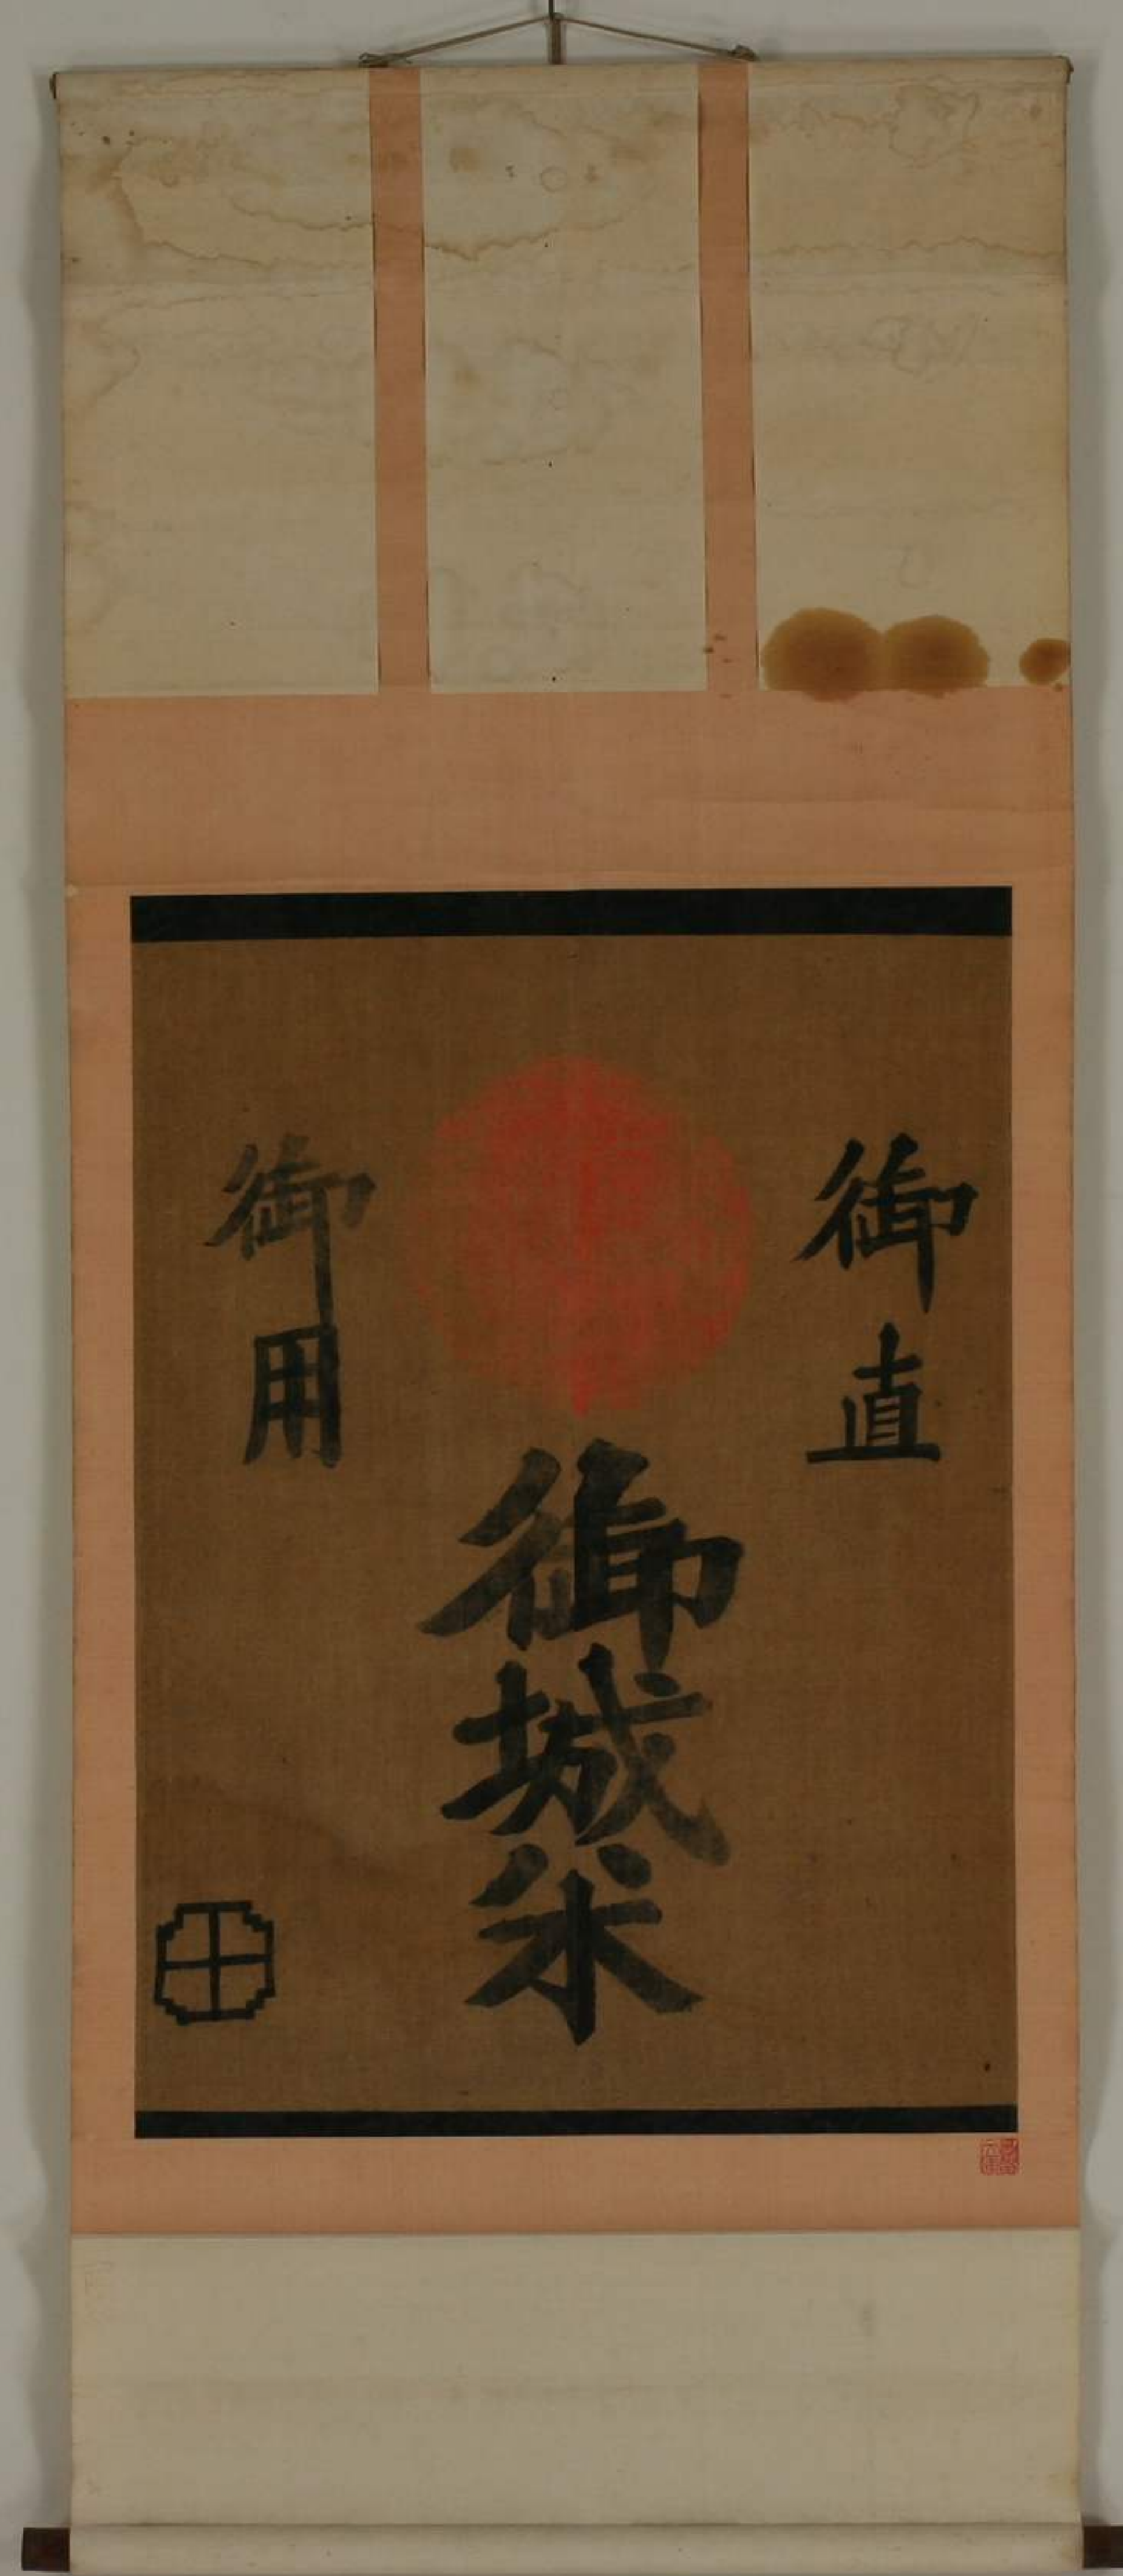 御直
御城米
御用